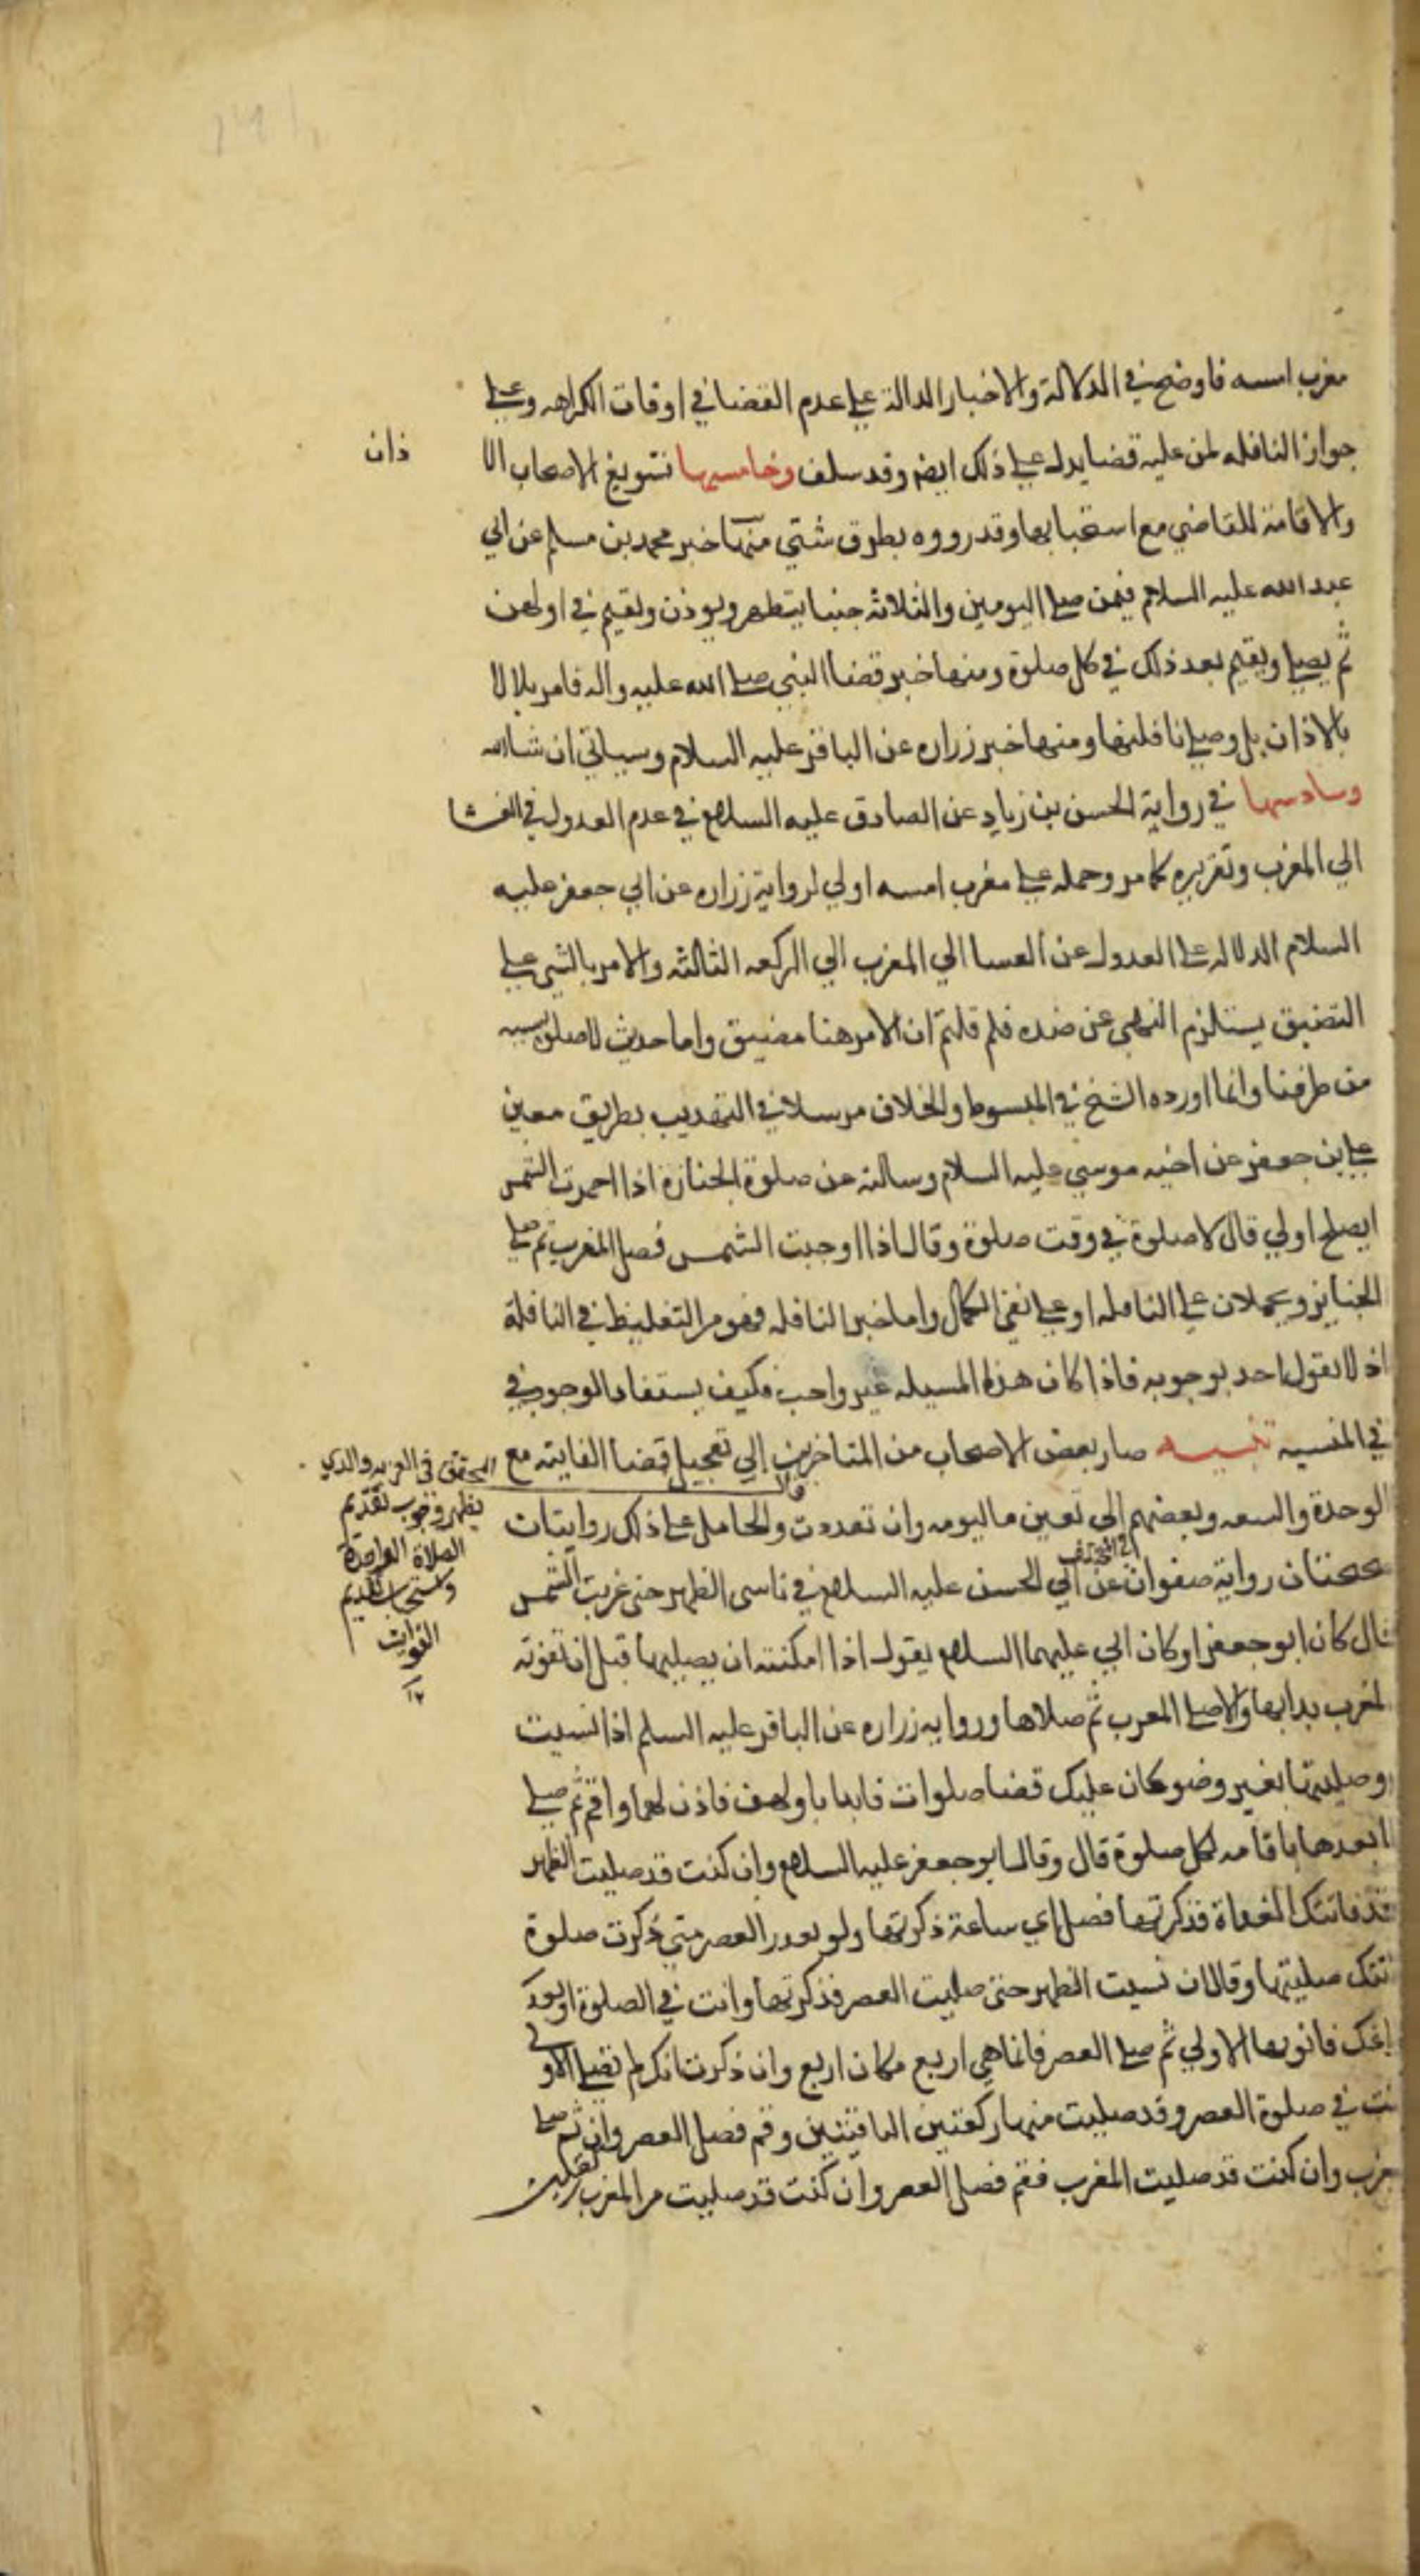 مغرب امسه فاوضح في الدلالة والاخبار الدالة علي عدم القضا في اوقات الكراهه وعلي
جواز النافله لمن عليه قضا يدل علي ذلك ايضا وقد سلف وخامسها تسويغ الاصحاب الا
ذان
والاقامة للقاضي مع استحبابها وقد رووه بطرق شتي منها خبر محمد بن مسلم عن ابي
عبد الله عليه السلام فيمن صلي اليومين والثلاثه جنبا يتطهر ويوذن ويقيم في اولهن
ثم يصلي ويقيم بعد ذلك في كل صلوة ومنها خبر قضا النبي صلي الله عليه واله فامر بلالا
بالاذان بل وصلي نافلتها ومنها خبر زراره عن الباقر عليه السلام وسياتي ان شاالله
وسادسها في رواية الحسن بن زياد عن الصادق عليه السلام في عدم العدول في العشا
الي المغرب وتقريره كما مر وحمله علي مغرب امسه اولي لرواية زراره عن ابي جعفر عليه
السلام الدلاله علي العدول عن العسا الي المغرب الي الركعه الثالثه والامر بالشي علي
التضيق يستلزم النهي عن ضده فلم قلتم ان الامر هنا مضيق واما حديث لاصلوه
من طرقنا وانما اورده الشيخ في المبسوط والخلاف مرسلا في التهذيب بطريق معين
علي بن جعفر عن اخيه موسي عليه السلام وسالته عن صلوة الجنازة اذا احمرت الشمس
ايصلح اولي قال لا صلوة في وقت صلوة وقال اذا اوجبت الشمس فصل المغرب ثم صل علي
الجنايز ويحملان علي النافله او علي نفي الكمال واما خبر النافله فهو من التغليظ في النافلة
اذ لا يقول احد بوجوبه فاذا كان هذا المسيله غير واجب فكيف يستفاد الوجوب في
في المنسيه تنبيه صار بعض الاصحاب من المتاخرين الي تعجيل قضا الفايته مع
الوحدة والسعه وبعضهم الي تعين ما ليومه وان تعددت والحامل علي ذلك روايتان
المحقق في العزيه والذي
يظهر وجوب تقديم
الصلاة الواحدة
واستحباب تقديم
الفوايت
صحيحتان رواية صفوان عن ابي الحسن عليه السلام في ناسي الظهر حتي غربت الشمس
قال كان ابو جعفر او كان ابي عليهما السلام يقول اذا امكنته ان يصليها قبل ان تفوته
المغرب بدا بها والا صلي المغرب ثم صلاها وروايه زراره عن الباقر عليه السلم اذا نسيت
او صليتها بغير وضو وكان عليك قضا صلوات فابدا باولهن فاذن لها واقم ثم صلي
ما بعدها باقامه لكل صلوة قال وقال ابو جعفر عليه السلام وان كنت قد صليت الظهر
قد فاتتك الغداة فذكرتها فصل اي ساعة ذكرتها ولو بعد العصر متي ذكرت صلوة
فاتتك صليتها وقال ان نسيت الظهر حتي صليت العصر فذكرتها وانت في الصلوة او بعد
فراغك فانوها الاولي ثم صلي العصر فانما هي اربع مكان اربع وان ذكرت انك لم تصلي الاولي
وانت في صلوة العصر وقد صليت منها ركعتين الباقيتين وقم فصل العصر وان
المغرب وان كنت قد صليت المغرب فقم فصل العصر وان كنت قد صليت من المغرب ركعتين